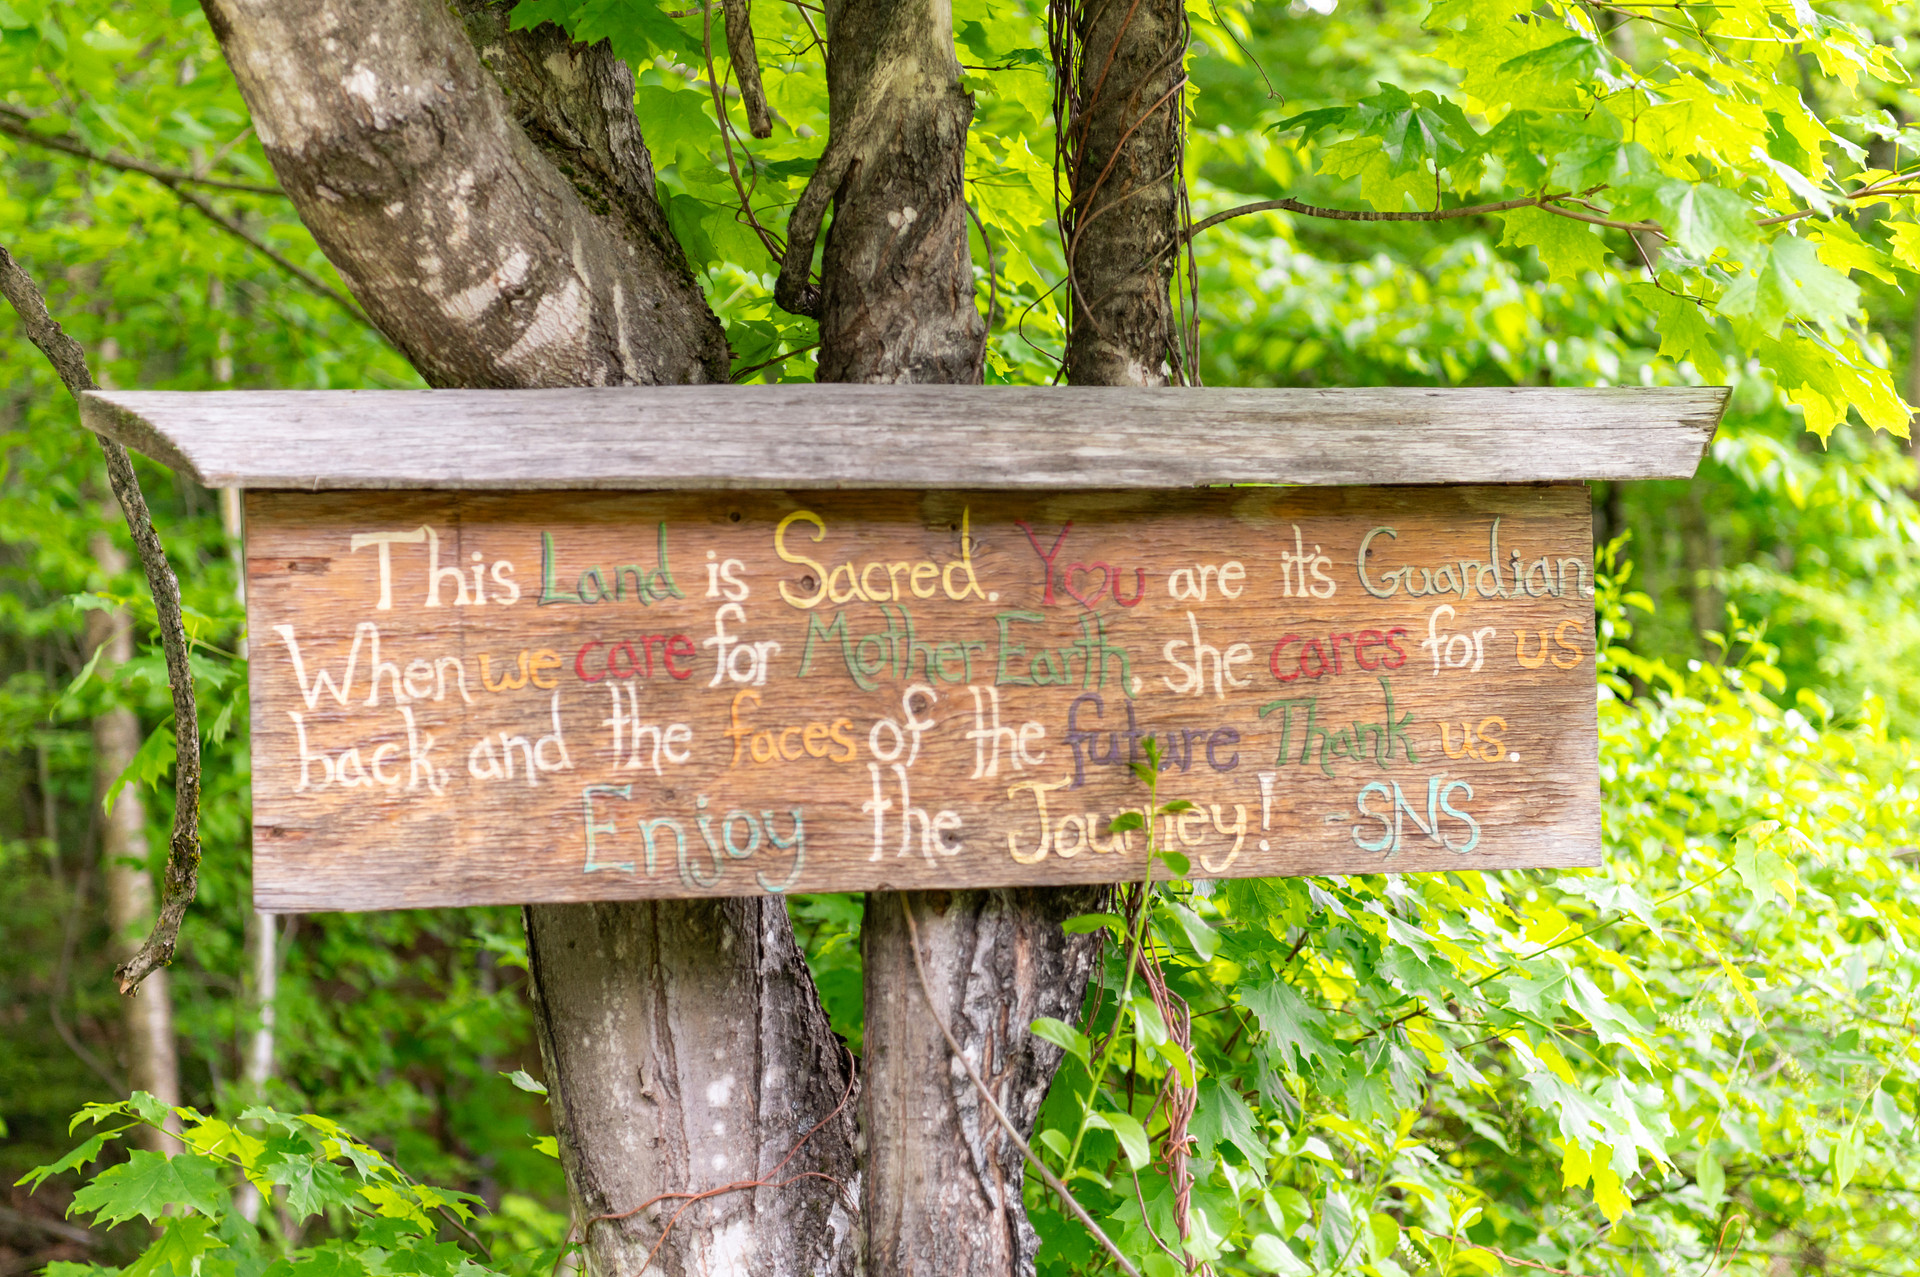 This Land is Sacred. You are it's Guardian.
When we care for Mother Earth, she cares for us
back, and the faces of the future Thank us.
Enjoy the Journey! -SNS